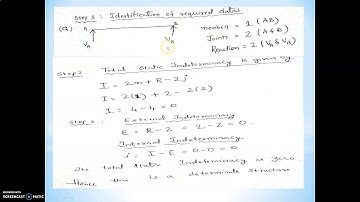 Step 1 : Identification of required datas.
(a) A B member = 1 (AB)
Joints = 2 (A & B)
VA VB Reaction = 2 (VA & VB)
Step 2 : Total Static Indeterminacy is given by
I = 2m + R - 2j
I = 2(1) + 2 - 2(2)
I = 4 - 4 = 0
Step 3 : External Indeterminacy
E = R - 2 = 2 - 2 = 0.
Internal Indeterminacy
i = I - E = 0 - 0 = 0
The total static Indeterminacy is zero.
Hence this is a determinate structure.
RECORDED WITH
SCREENCAST MATIC